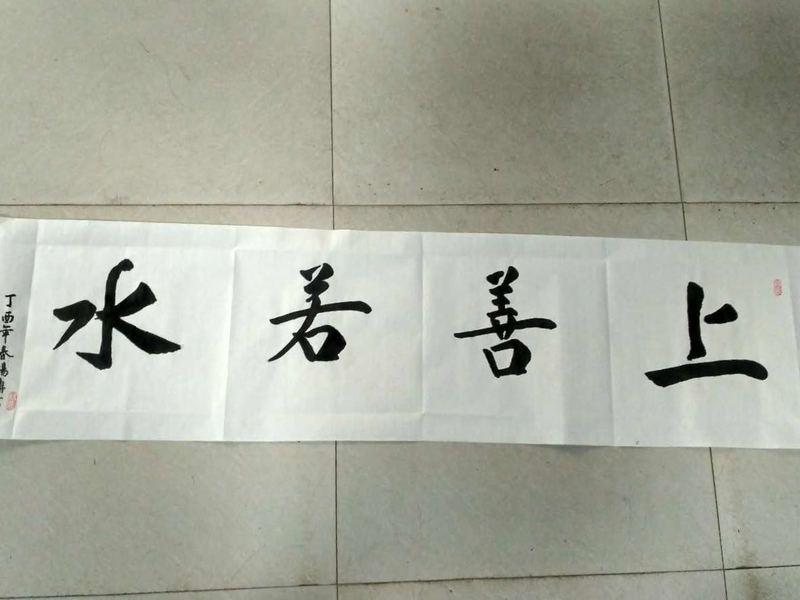 上善若水
丁酉年春杨